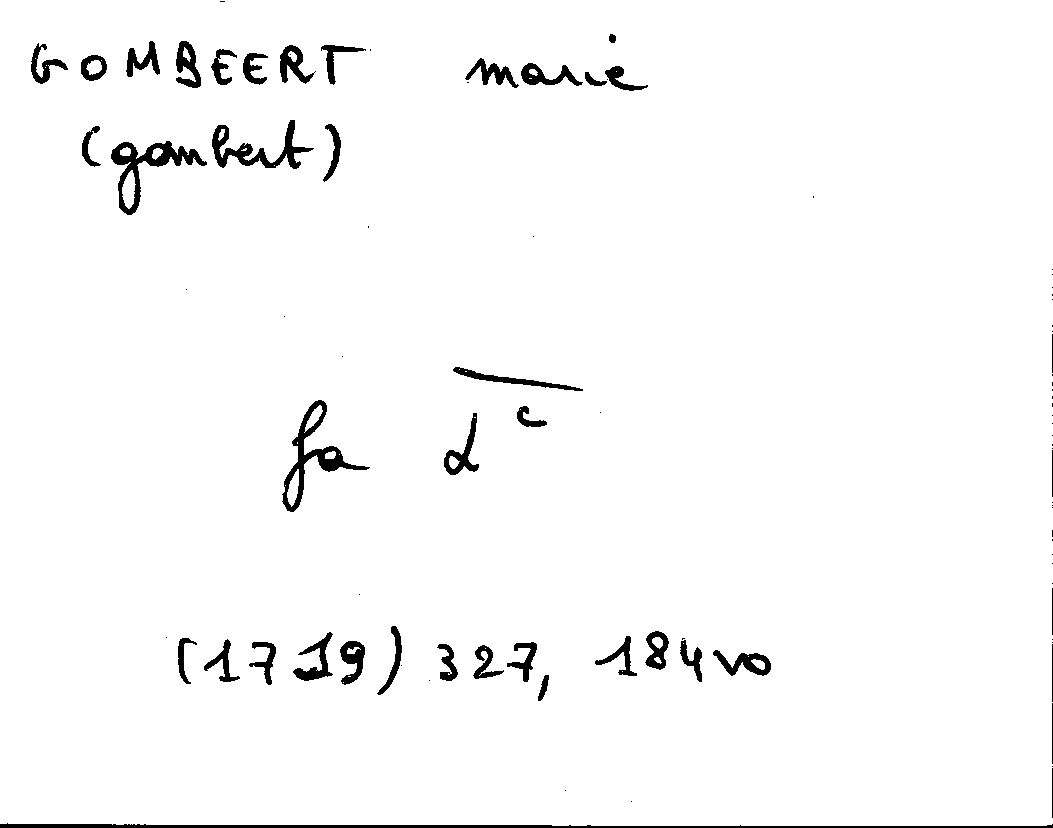 GOMBEERT marie
(gombert)
fa d^c
(1719) 327, 184vo